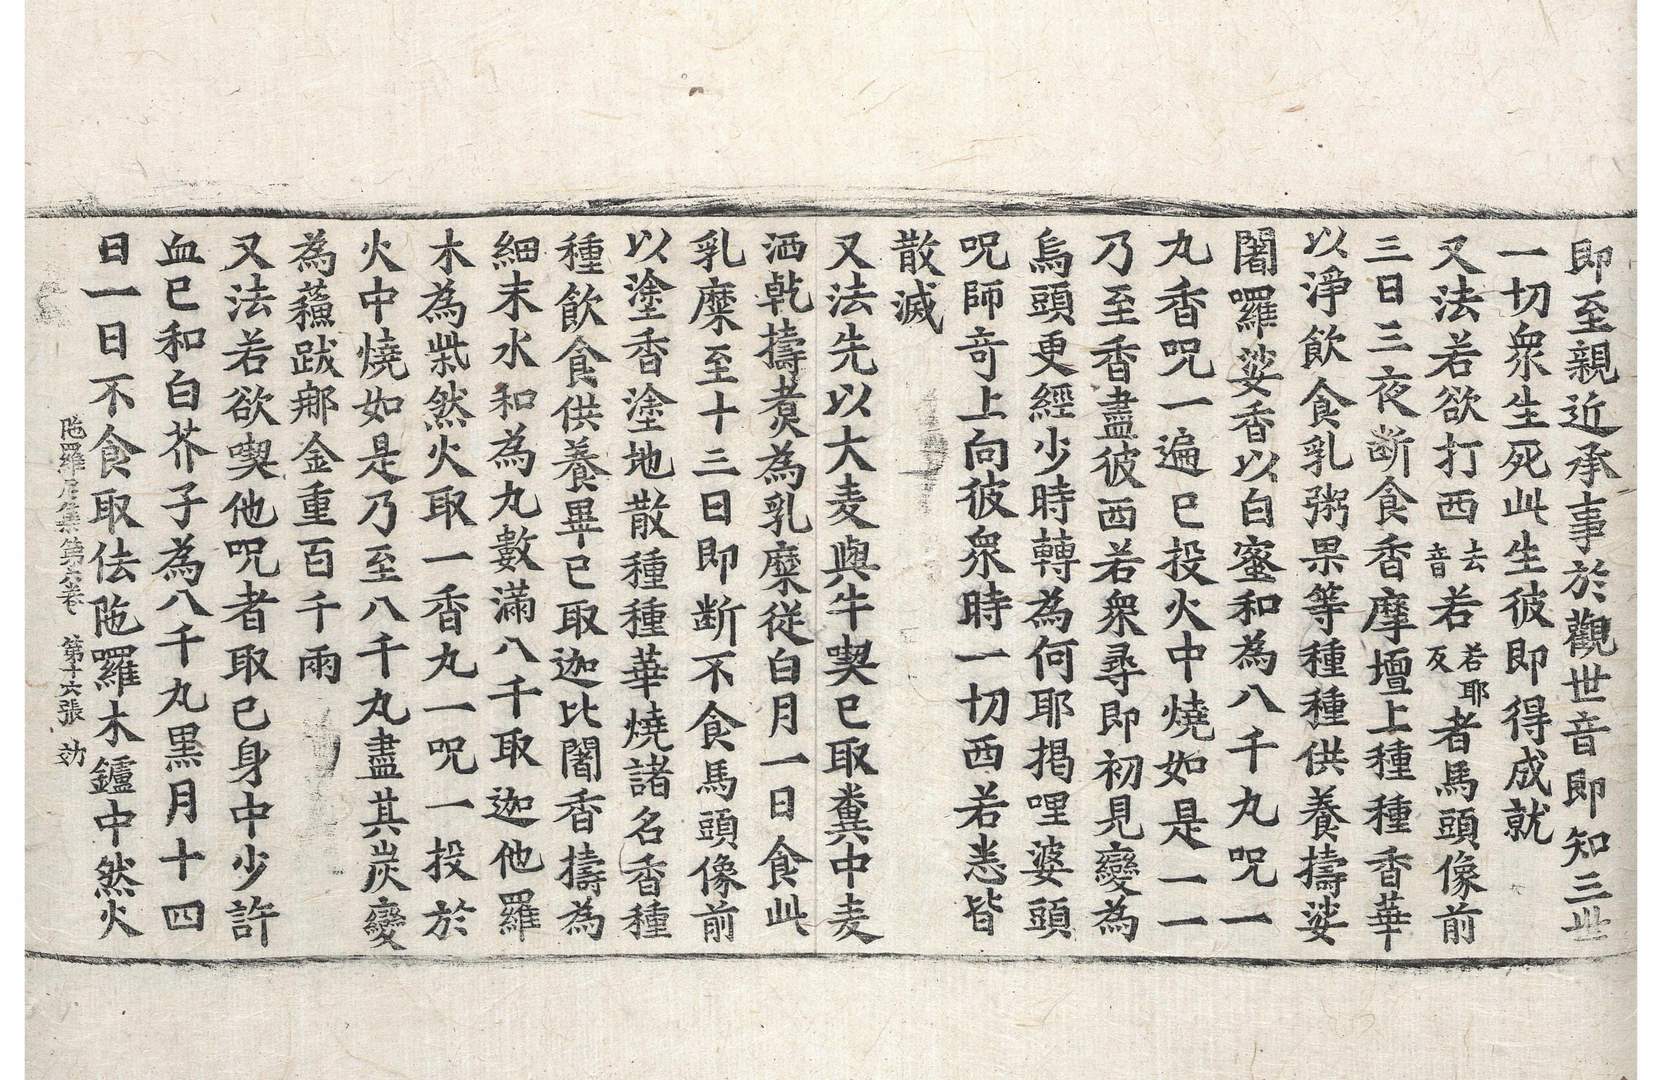 即至親近承事於觀世音即知三世
一切衆生死此生彼即得成就
又法若欲打西去音若若耶反者馬頭像前
三日三夜断食香摩壇上種種香華
以淨飲食乳粥果等種種供養擣娑
闍羅娑香以白蜜和為八千丸呪一
丸香呪一遍已投火中燒如是一一
乃至香盡彼西若衆尋即初見變為
烏頭更經少時轉為何耶揭哩婆頭
呪師竒上向彼衆時一切西若悉皆
散滅
又法先以大麦與牛喫已取糞中麦
洒乹擣煑為乳糜従白月一日食此
乳糜至十三日即断不食馬頭像前
以塗香塗地散種種華燒諸名香種
種飲食供養畢已取迦比闍香擣為
細末水和為丸數滿八千取迦他羅
木為㭰然火取一香丸一呪一投於
火中燒如是乃至八千丸盡其炭變
為蘓跋那金重百千兩
又法若欲喫他呪者取已身中少許
血已和白芥子為八千丸黒月十四
日一日不食取佉陁羅木鑪中然火
陁羅尼集第六卷 第十六張 効